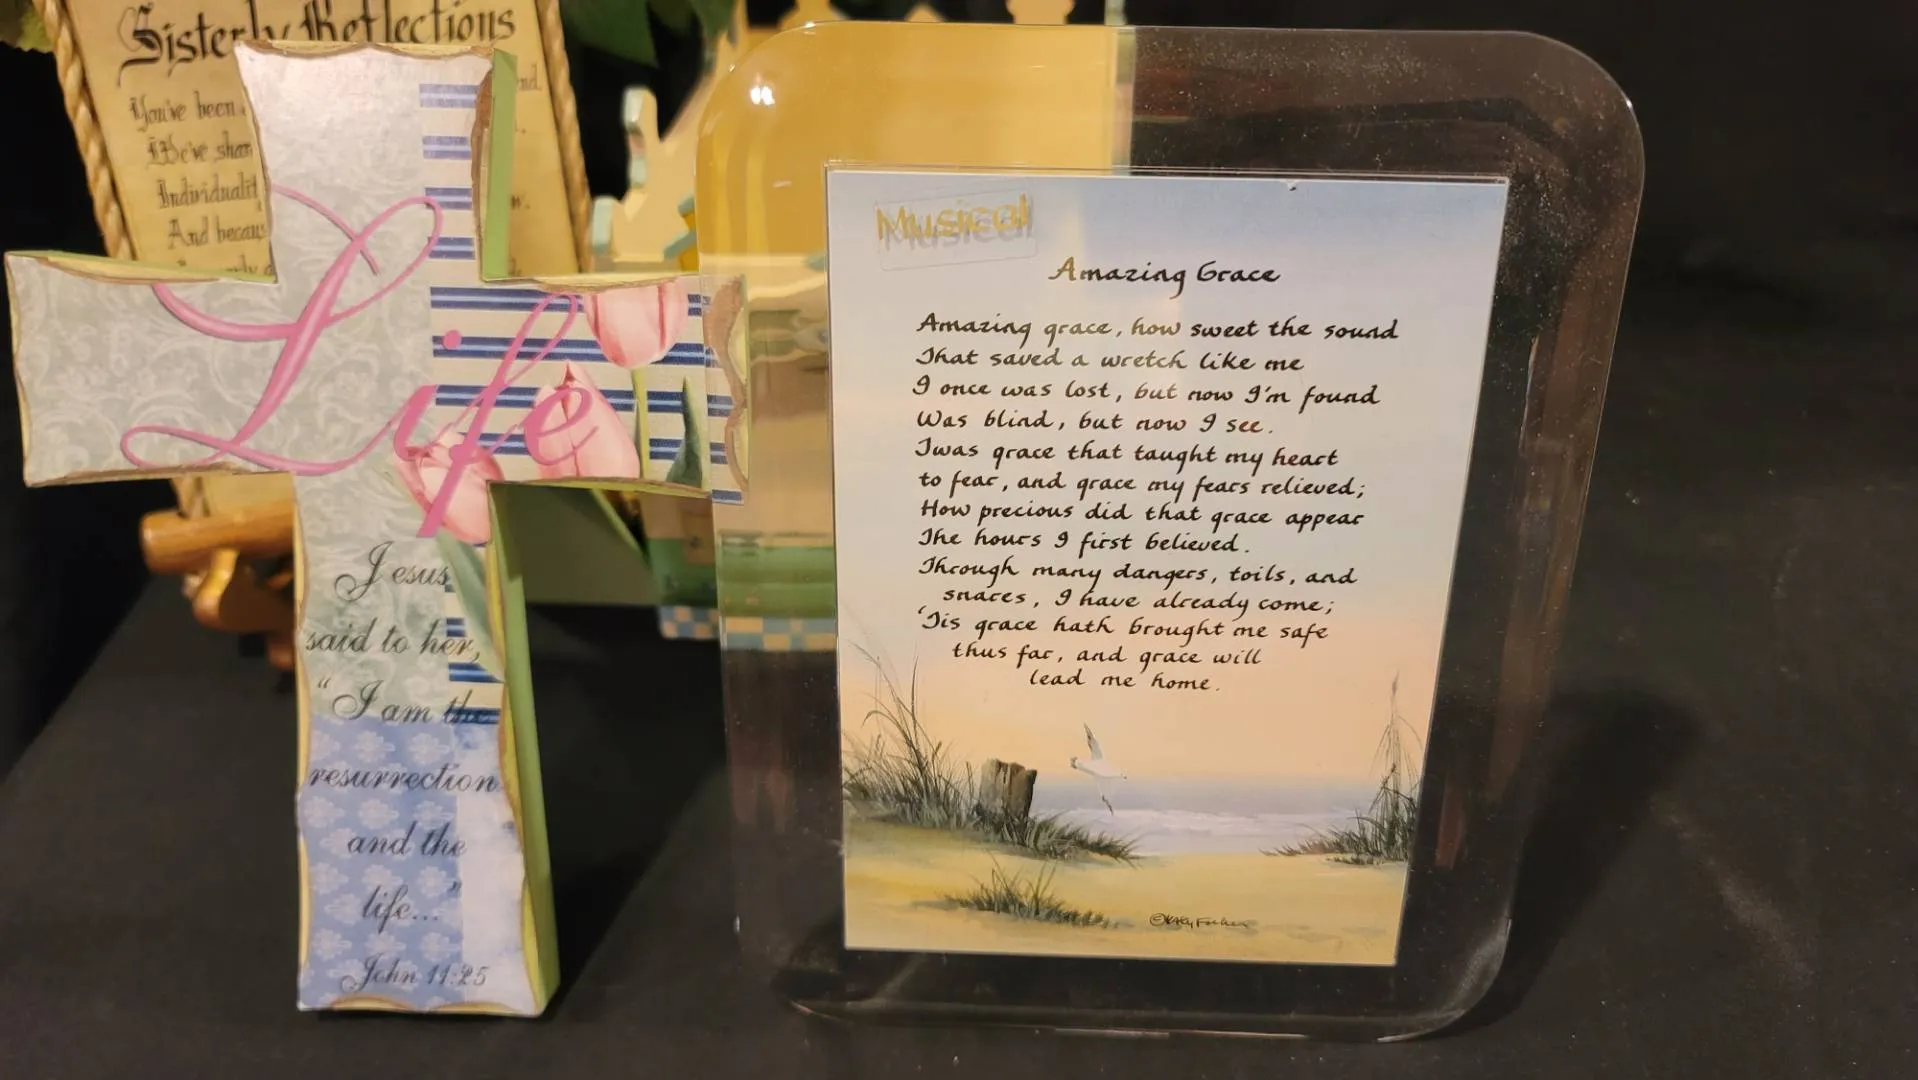 Sisterly Reflections
You've been
We've shar
Individualit
And becaus
Life
Jesus
said to her,
"I am the
resurrection
and the
life..."
John 11:25
Musical
Amazing Grace
Amazing grace, how sweet the sound
That saved a wretch like me
I once was lost, but now I'm found
Was blind, but now I see.
Twas grace that taught my heart
to fear, and grace my fears relieved;
How precious did that grace appear
The hours I first believed.
Through many dangers, toils, and
snares, I have already come;
'Tis grace hath brought me safe
thus far, and grace will
lead me home.